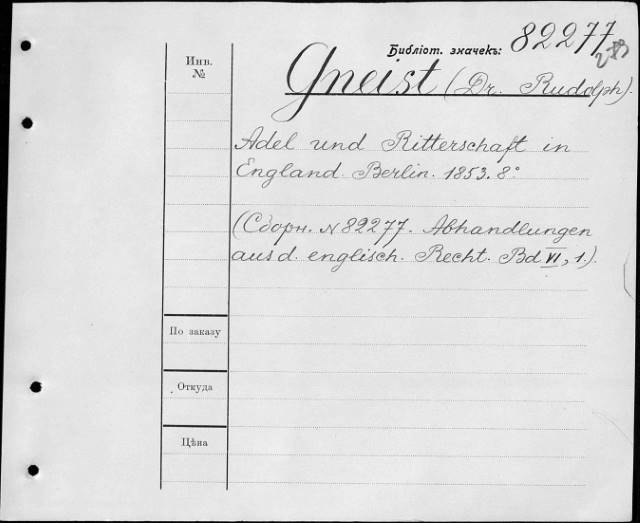 Библіот. значекъ: 82277
Инв.
№
Gneist (Dr. Rudolph).
Adel und Ritterschaft in
England. Berlin. 1853. 8°
(Сборн. N 82277. Abhandlungen
aus d. englisch. Recht. Bd VI, 1.)
По заказу
Откуда
Цѣна